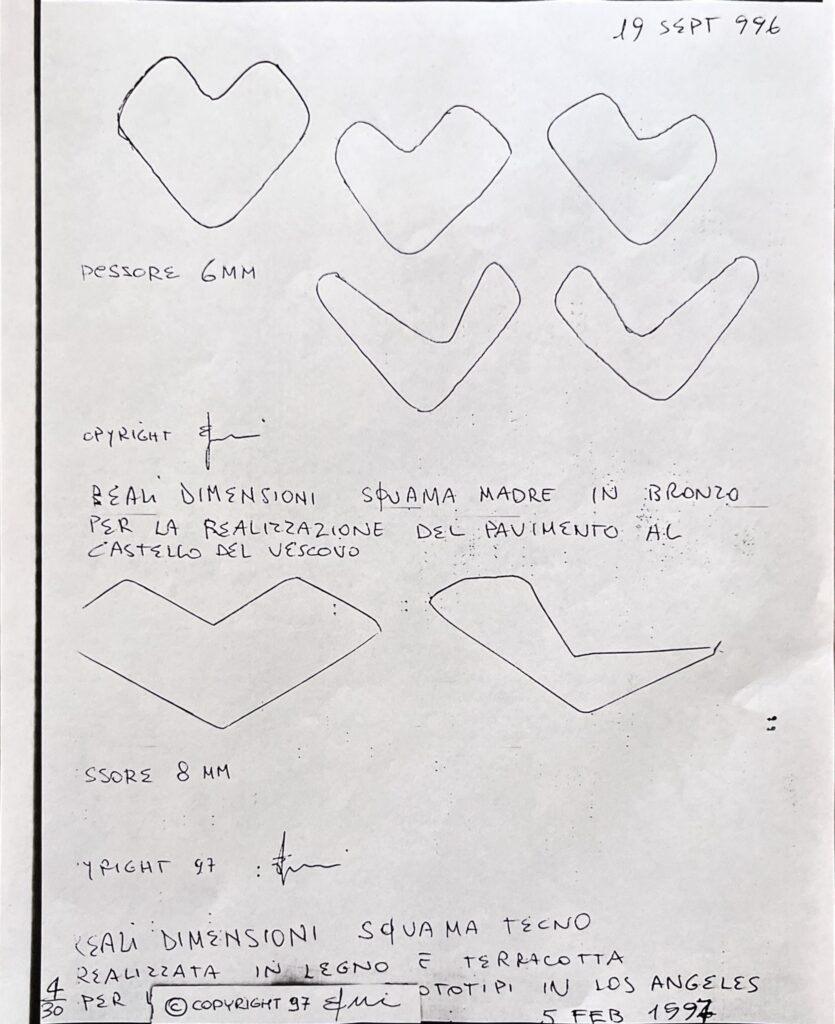 19 SEPT 996
PESSORE 6MM
OPYRIGHT
REALI DIMENSIONI SQUAMA MADRE IN BRONZO
PER LA REALIZZAZIONE DEL PAVIMENTO AL
CASTELLO DEL VESCOVO
SSORE 8 MM
YRIGHT 97
REALI DIMENSIONI SQUAMA TECNO
REALIZZATA IN LEGNO E TERRACOTTA
4/30 PER OTOTIPI IN LOS ANGELES
© COPYRIGHT 97
5 FEB 1997